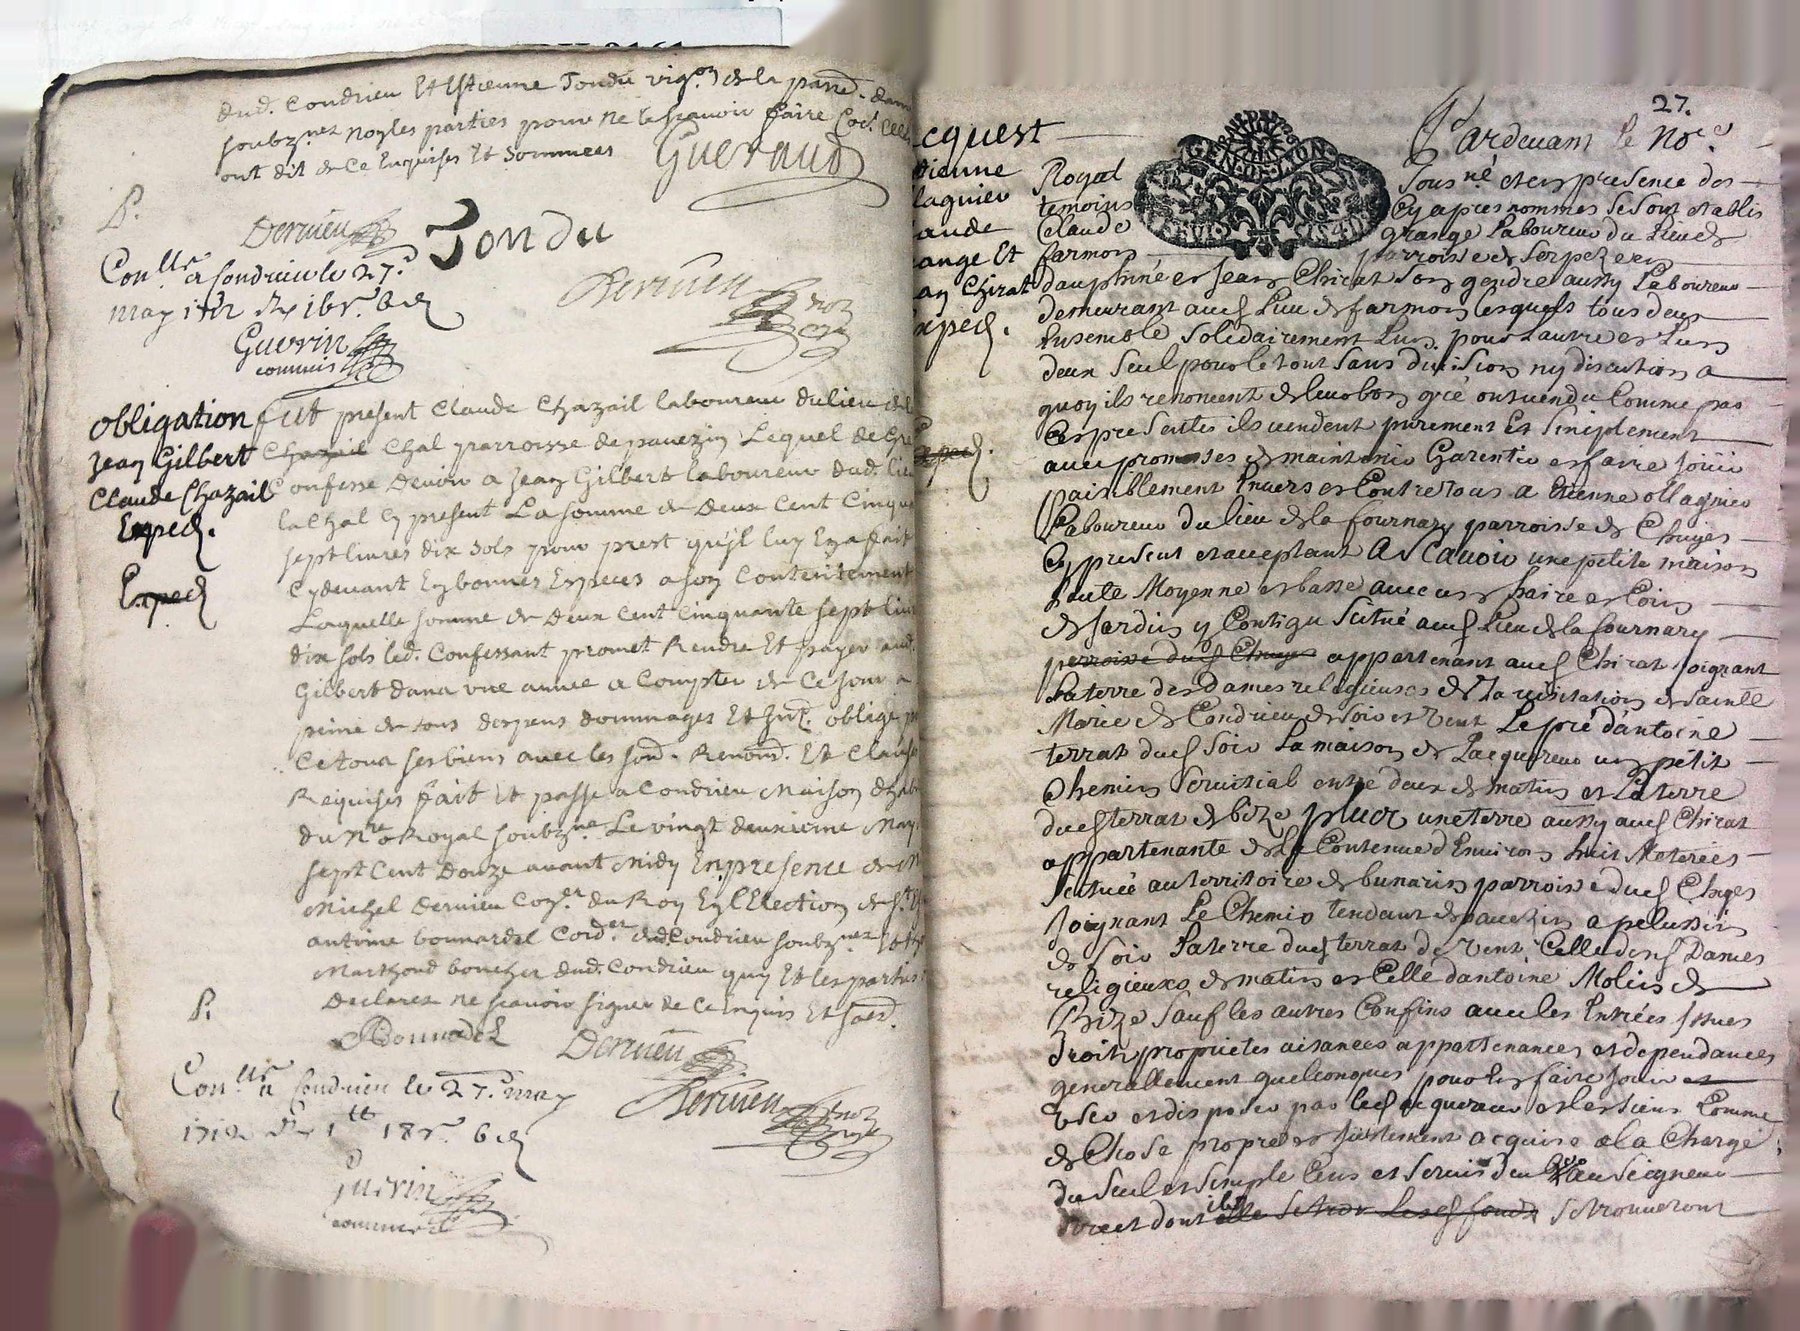 dud. Condrieu Et Estienne Tondu vig.on de la parr.
soubz.nez no les parties pour ne le scavoir faire
ont dit de ce Enquises Et Sommees
Gueraud
P.
Dervieu
Tondu
Con.lle a Condrieu le 27.e
may 1712
Dervieu
Guerin
commis
obligation
Jean Gilbert
Claude Chazail
Exped.
Exped
fut present Claude Chazail laboureur du lieu de
Chazail Chal parroisse de pavezin Lequel de gre
Confesse devoir a Jean Gilbert laboureur dud. lieu
la Chal Cy present La somme de Deux Cent Cinqu
sept livres dix sols pour prest qu'jl luy En a fait
Cy devant En bonnes Especes a son Contentement
Laquelle somme de Deux Cent Cinquante sept liv
dix sols led. Confessant promet Rendre Et payer aud.
Gilbert dans une annee a Compter de Ce jour a
peine de tous despens dommages Et Int. oblige
Ce tous ses biens avec les Renond. Et Clauses
Requises fait Et passe a Condrieu Maison
du N.re Royal soubz.ne Le vingt deuxieme May
sept Cent Douze avant Midy En presence de
Michel Dervieu Con.er du Roy En l'Election de S.t
antoine bonnardel Cord.er dud. Condrieu soubz.nez
Marchand boucher dud. Condrieu quy Et les parties
declarer ne scavoir signer de Ce Enquis Et
P.
Bonnardel
Dervieu
Con.lle a Condrieu le 27.e may
1712
Dervieu
Guerin
commis
27.
cquest
tienne
lagnier
aude
ange Et
an Chirat
xped.
GEN. DE LYON
Pardevant le No.re
Royal Sousné et en presence des
temoins Cy apres nommes se sont establis
Claude grange Laboureur du lieu de
farmon parroisse de serpeze en
dauphiné et Jean Chirat son gendre aussy Laboureur
demeurant aud. Lieu de farmon lesquels tous deux
Ensemble solidairement L'un pour l'autre et L'un
deux seul pour le tout sans division ny discution a
quoy ils renoncent de leur bon gré ont vendu Comme par
Ces presentes ils vendent purement Et simplement
avec promesses de maintenir Garentir et faire joüir
paisiblement Envers et Contre tous a Etienne ollagnier
Laboureur du lieu de la fournary parroisse de Chuyes
Cy present et acceptant A Scavoir une petite maison
haute Moyenne et basse avec et Coin
de Jardin y Contigu Situé aud. Lieu de la fournary
parroisse dud. Chuyes appartenant aud. Chirat joignant
La terre des Dames religieuses de la visitation de sainte
Marie de Condrieu de soir et vent Le pré d'antoine
terrat dud. soir La maison de L'acquereur un petit
Chemin servitial entre deux de matin et La terre
dud. terrat de bize plus une terre aussy aud. Chirat
appartenante de la Contenue d'Environ huit Meterées
Scituée au territoire de bunarin parroisse dud. Chuyes
joignant Le Chemin tendant de pavezin a pelussin
de soir La terre dud. terrat de vent Celle desd. Dames
religieuses de matin et Celle d'antoine Molin de
Bize Sauf les autres Confins avec les Entrées Issues
Droits proprietes aisances appartenances et dependances
generallement quelconques pour En faire jouir et
user et disposer par led. acquereur et les siens Comme
de Chose propre et justement acquise a la Charge
du seul et simple Cens et servis deu au Seigneur
direct dont ils se trouveront